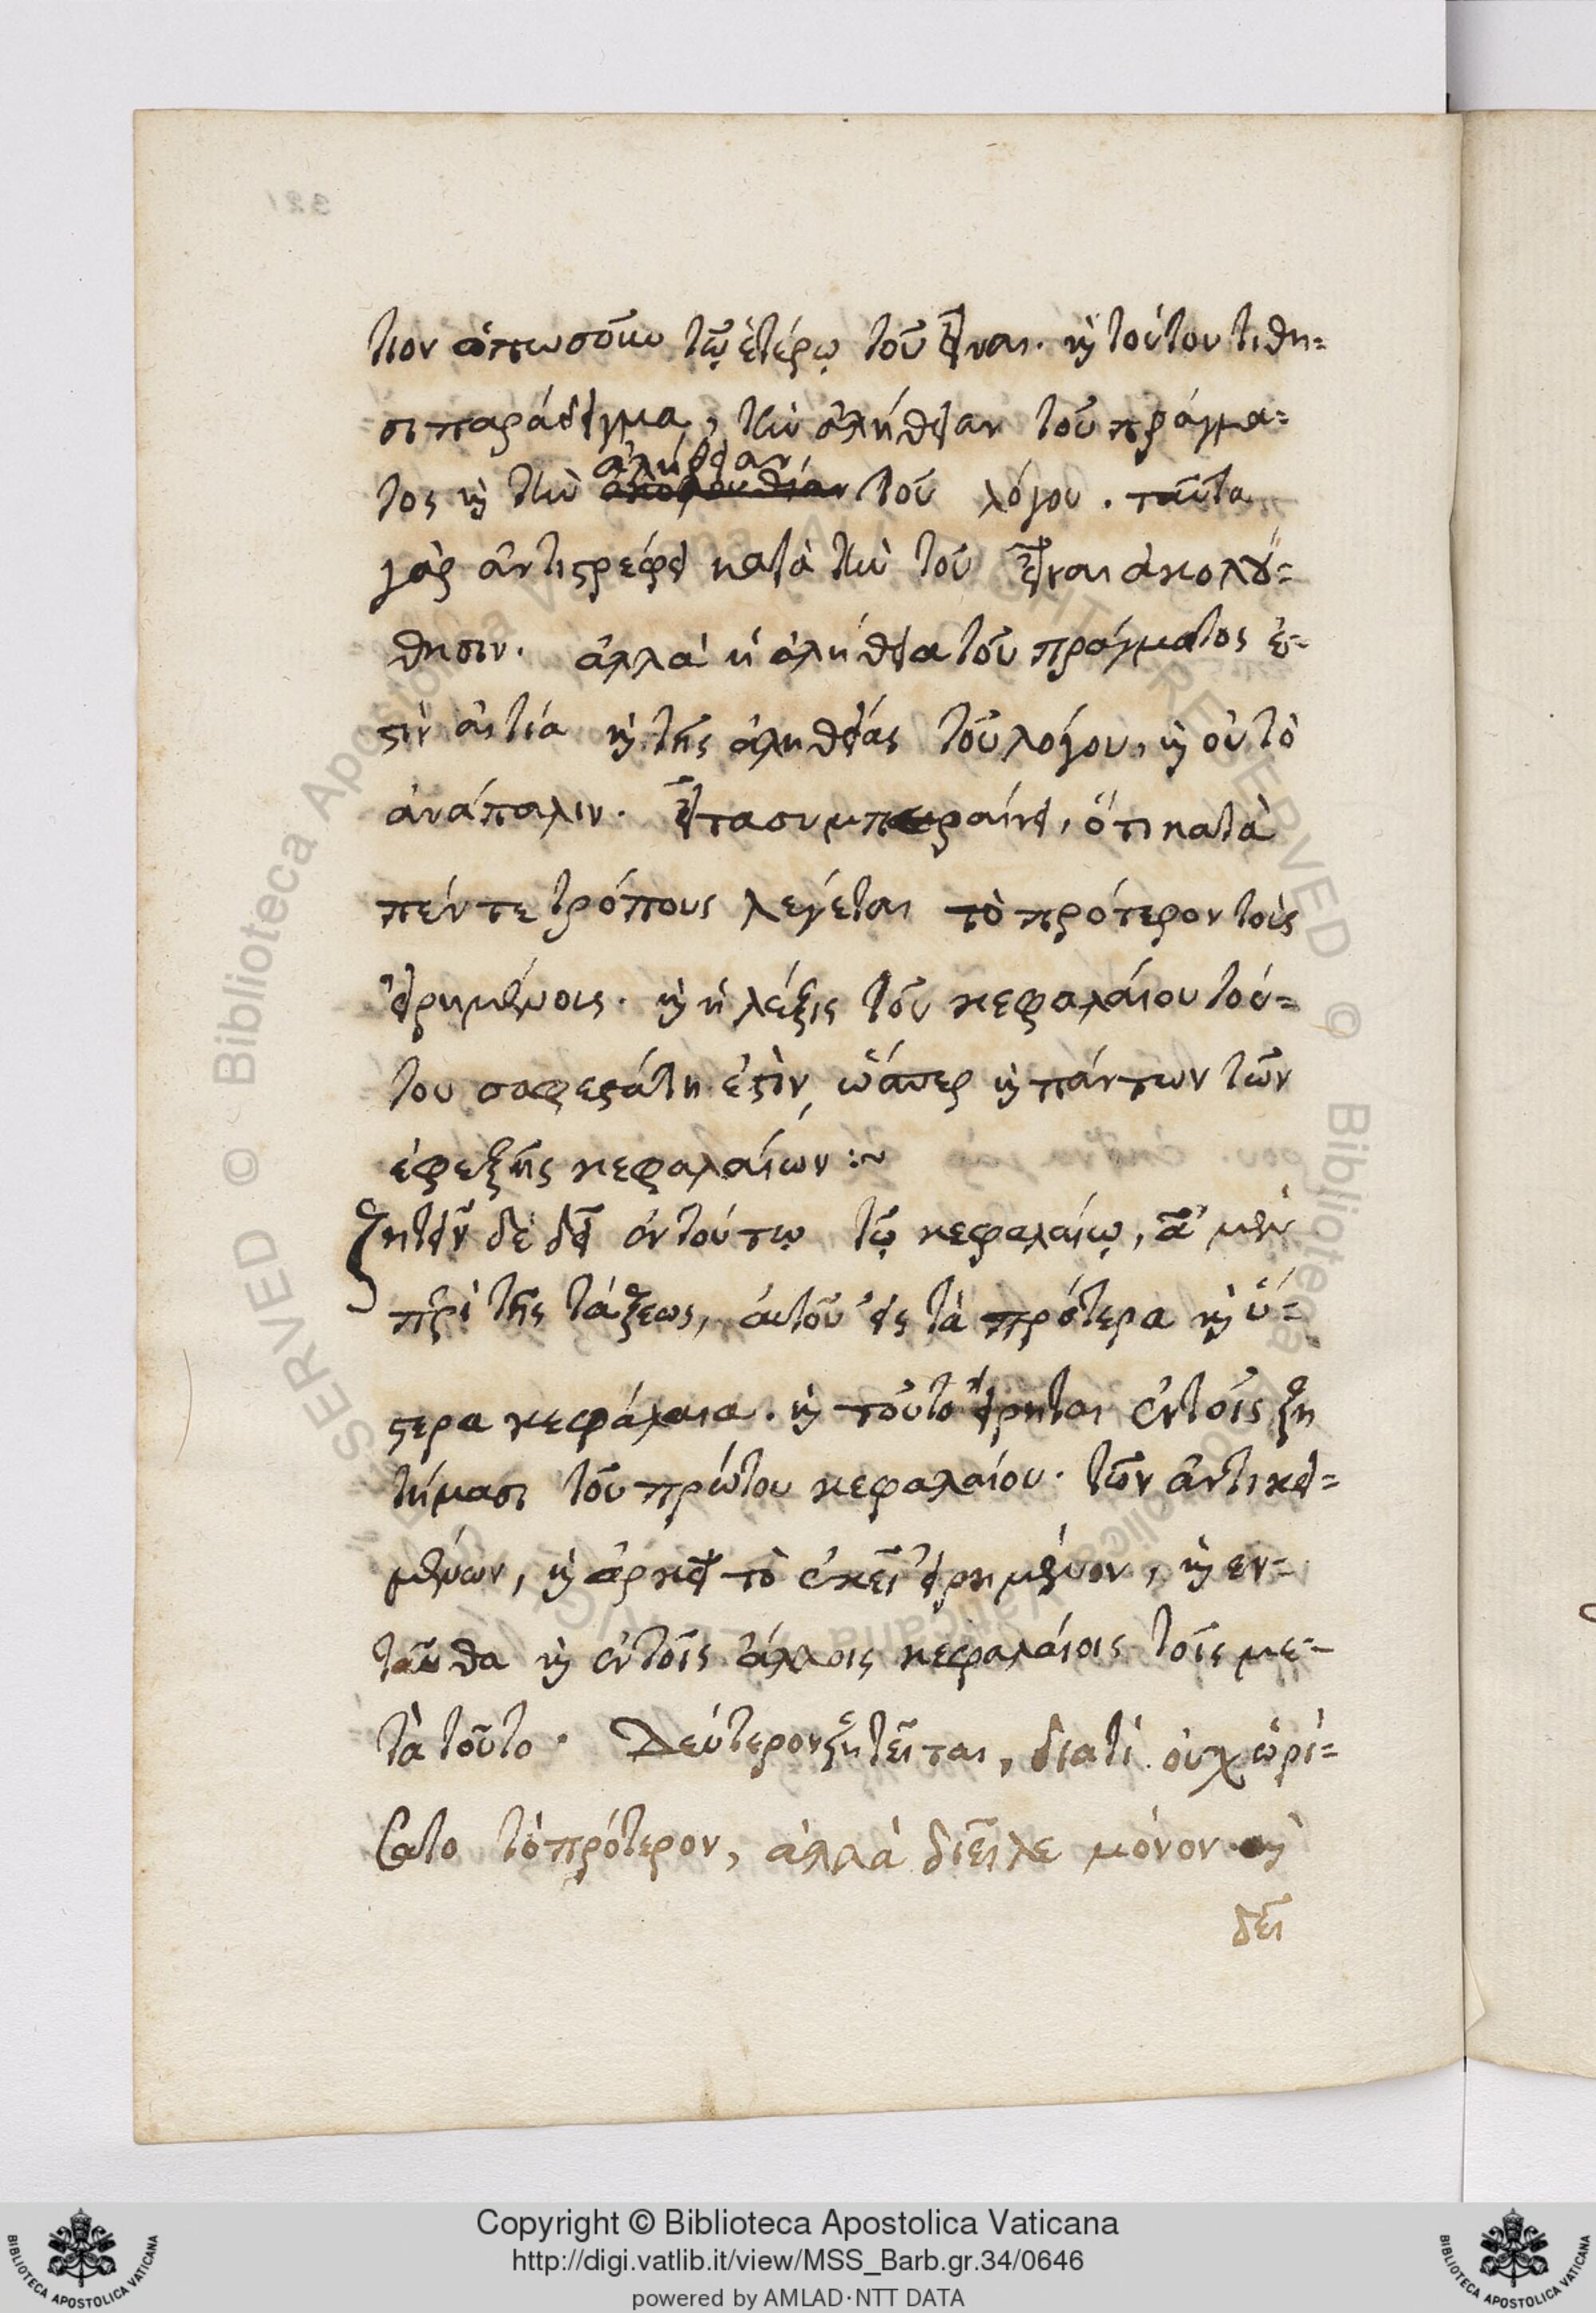 321
τιον ὁπωσοῦν τῷ ἑτέρῳ τοῦ εἶναι. καὶ τούτου τίθη=
σι παράδειγμα, τὴν ἀλήθειαν τοῦ πράγμα=
ἀλήθειαν
τος καὶ τὴν ἀκολουθίαν τοῦ λόγου. ταῦτα
γὰρ ἀντιστρέφει κατὰ τὴν τοῦ εἶναι ἀκολού=
θησιν. ἀλλὰ ἡ ἀλήθεια τοῦ πράγματος ἐ=
στὶν αἰτία καὶ τῆς ἀληθείας τοῦ λόγου, καὶ οὐ τὸ
ἀνάπαλιν. εἶτα συμπεραίνει, ὅτι κατὰ
πέντε τρόπους λέγεται τὸ πρότερον τοῖς
εἰρημένοις. καὶ ἡ λέξις τοῦ κεφαλαίου τού=
του σαφεστάτη ἐστὶν, ὥσπερ καὶ πάντων τῶν
ἐφεξῆς κεφαλαίων :~
Ζητεῖν δὲ δεῖ ἐν τούτῳ τῷ κεφαλαίῳ, α' μὲν
περὶ τῆς τάξεως, αὐτοῦ εἰς τὰ πρότερα καὶ ὕ=
στερα κεφάλαια. καὶ τοῦτο εἴρηται ἐν τοῖς ζη
τήμασι τοῦ πρώτου κεφαλαίου. τῶν ἀντικει=
μένων, καὶ ἀρκεῖ τὸ ἐκεῖ εἰρημένον, καὶ εν=
ταῦθα καὶ ἐν τοῖς ἄλλοις κεφαλαίοις τοῖς με=
τὰ τοῦτο. Δεύτερον ζητεῖται, διατί οὐχ ὡρί=
σατο τὸ πρότερον, ἀλλὰ διεῖλε μόνον καὶ
δεῖ
Copyright © Biblioteca Apostolica Vaticana
http://digi.vatlib.it/view/MSS_Barb.gr.34/0646
powered by AMLAD·NTT DATA